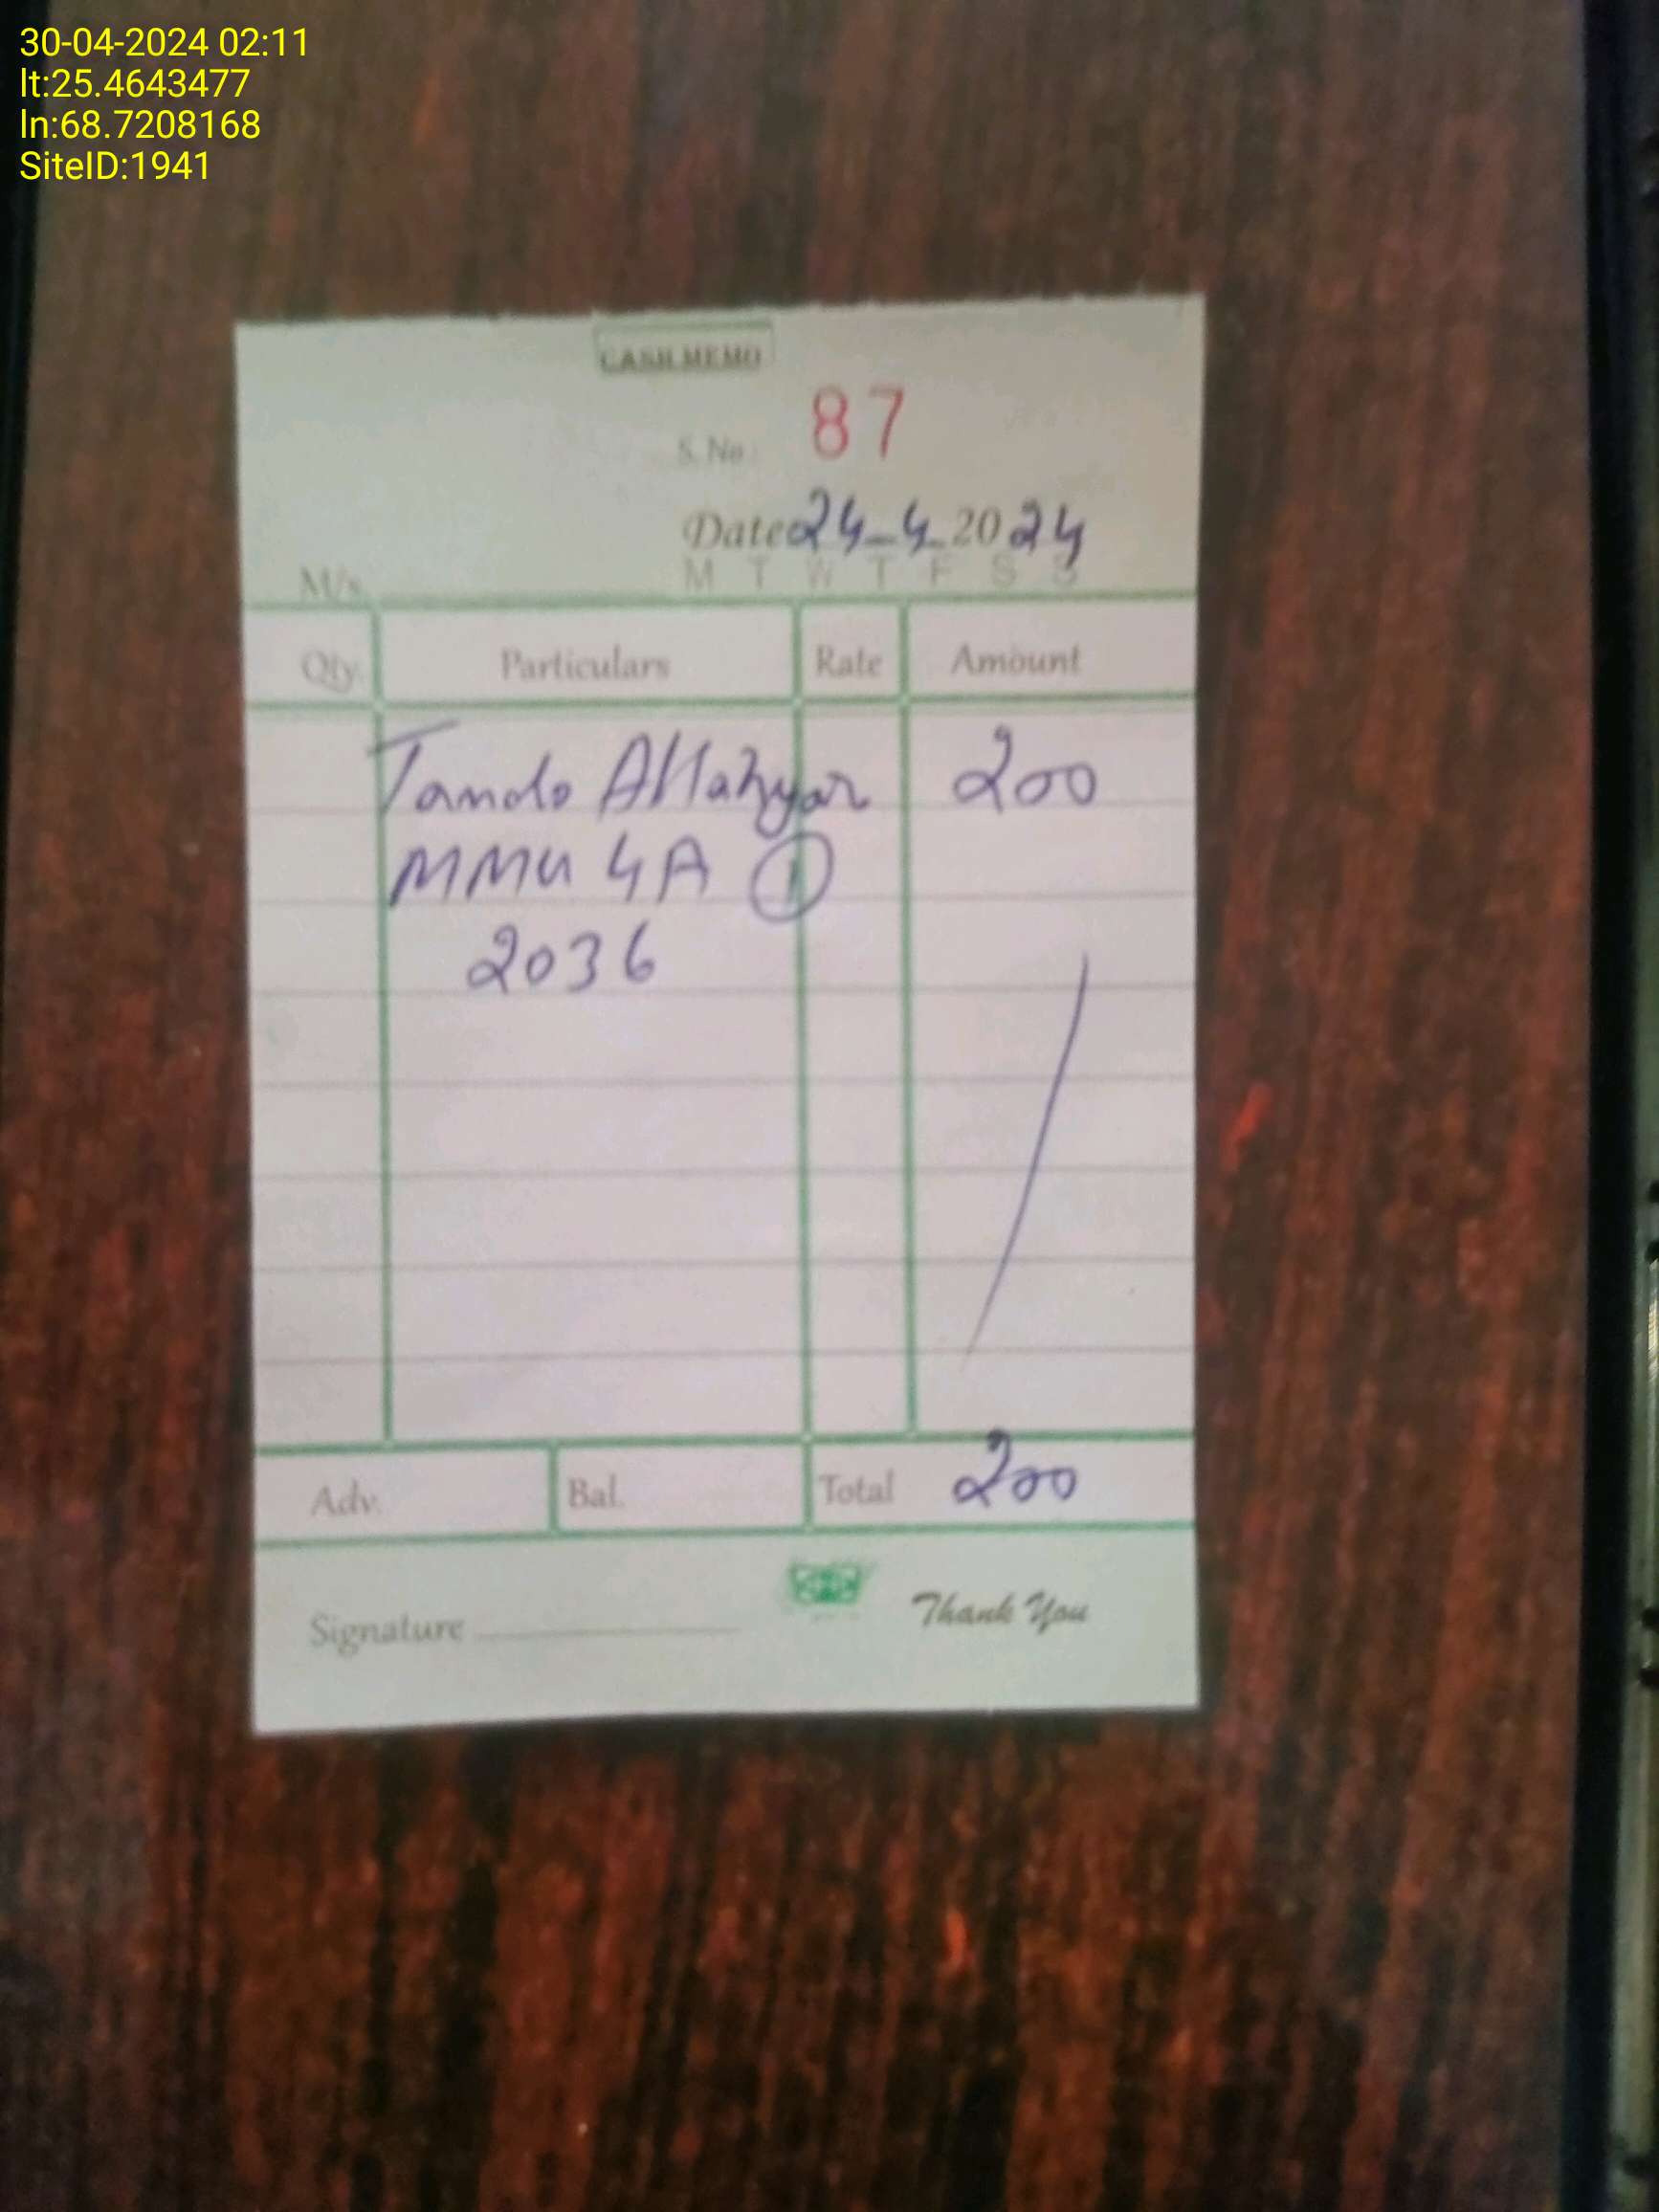 30-04-2024 02:11
lt:25.4643477
ln:68.7208168
SiteID:1941
CASH MEMO
S. No 87
Date 24-4-2024
M T W T F S S
M/s.
Qty. Particulars Rate Amount
Tando Allahyar 200
MMU 4A 1
2036
Adv. Bal. Total 200
Signature
Thank You